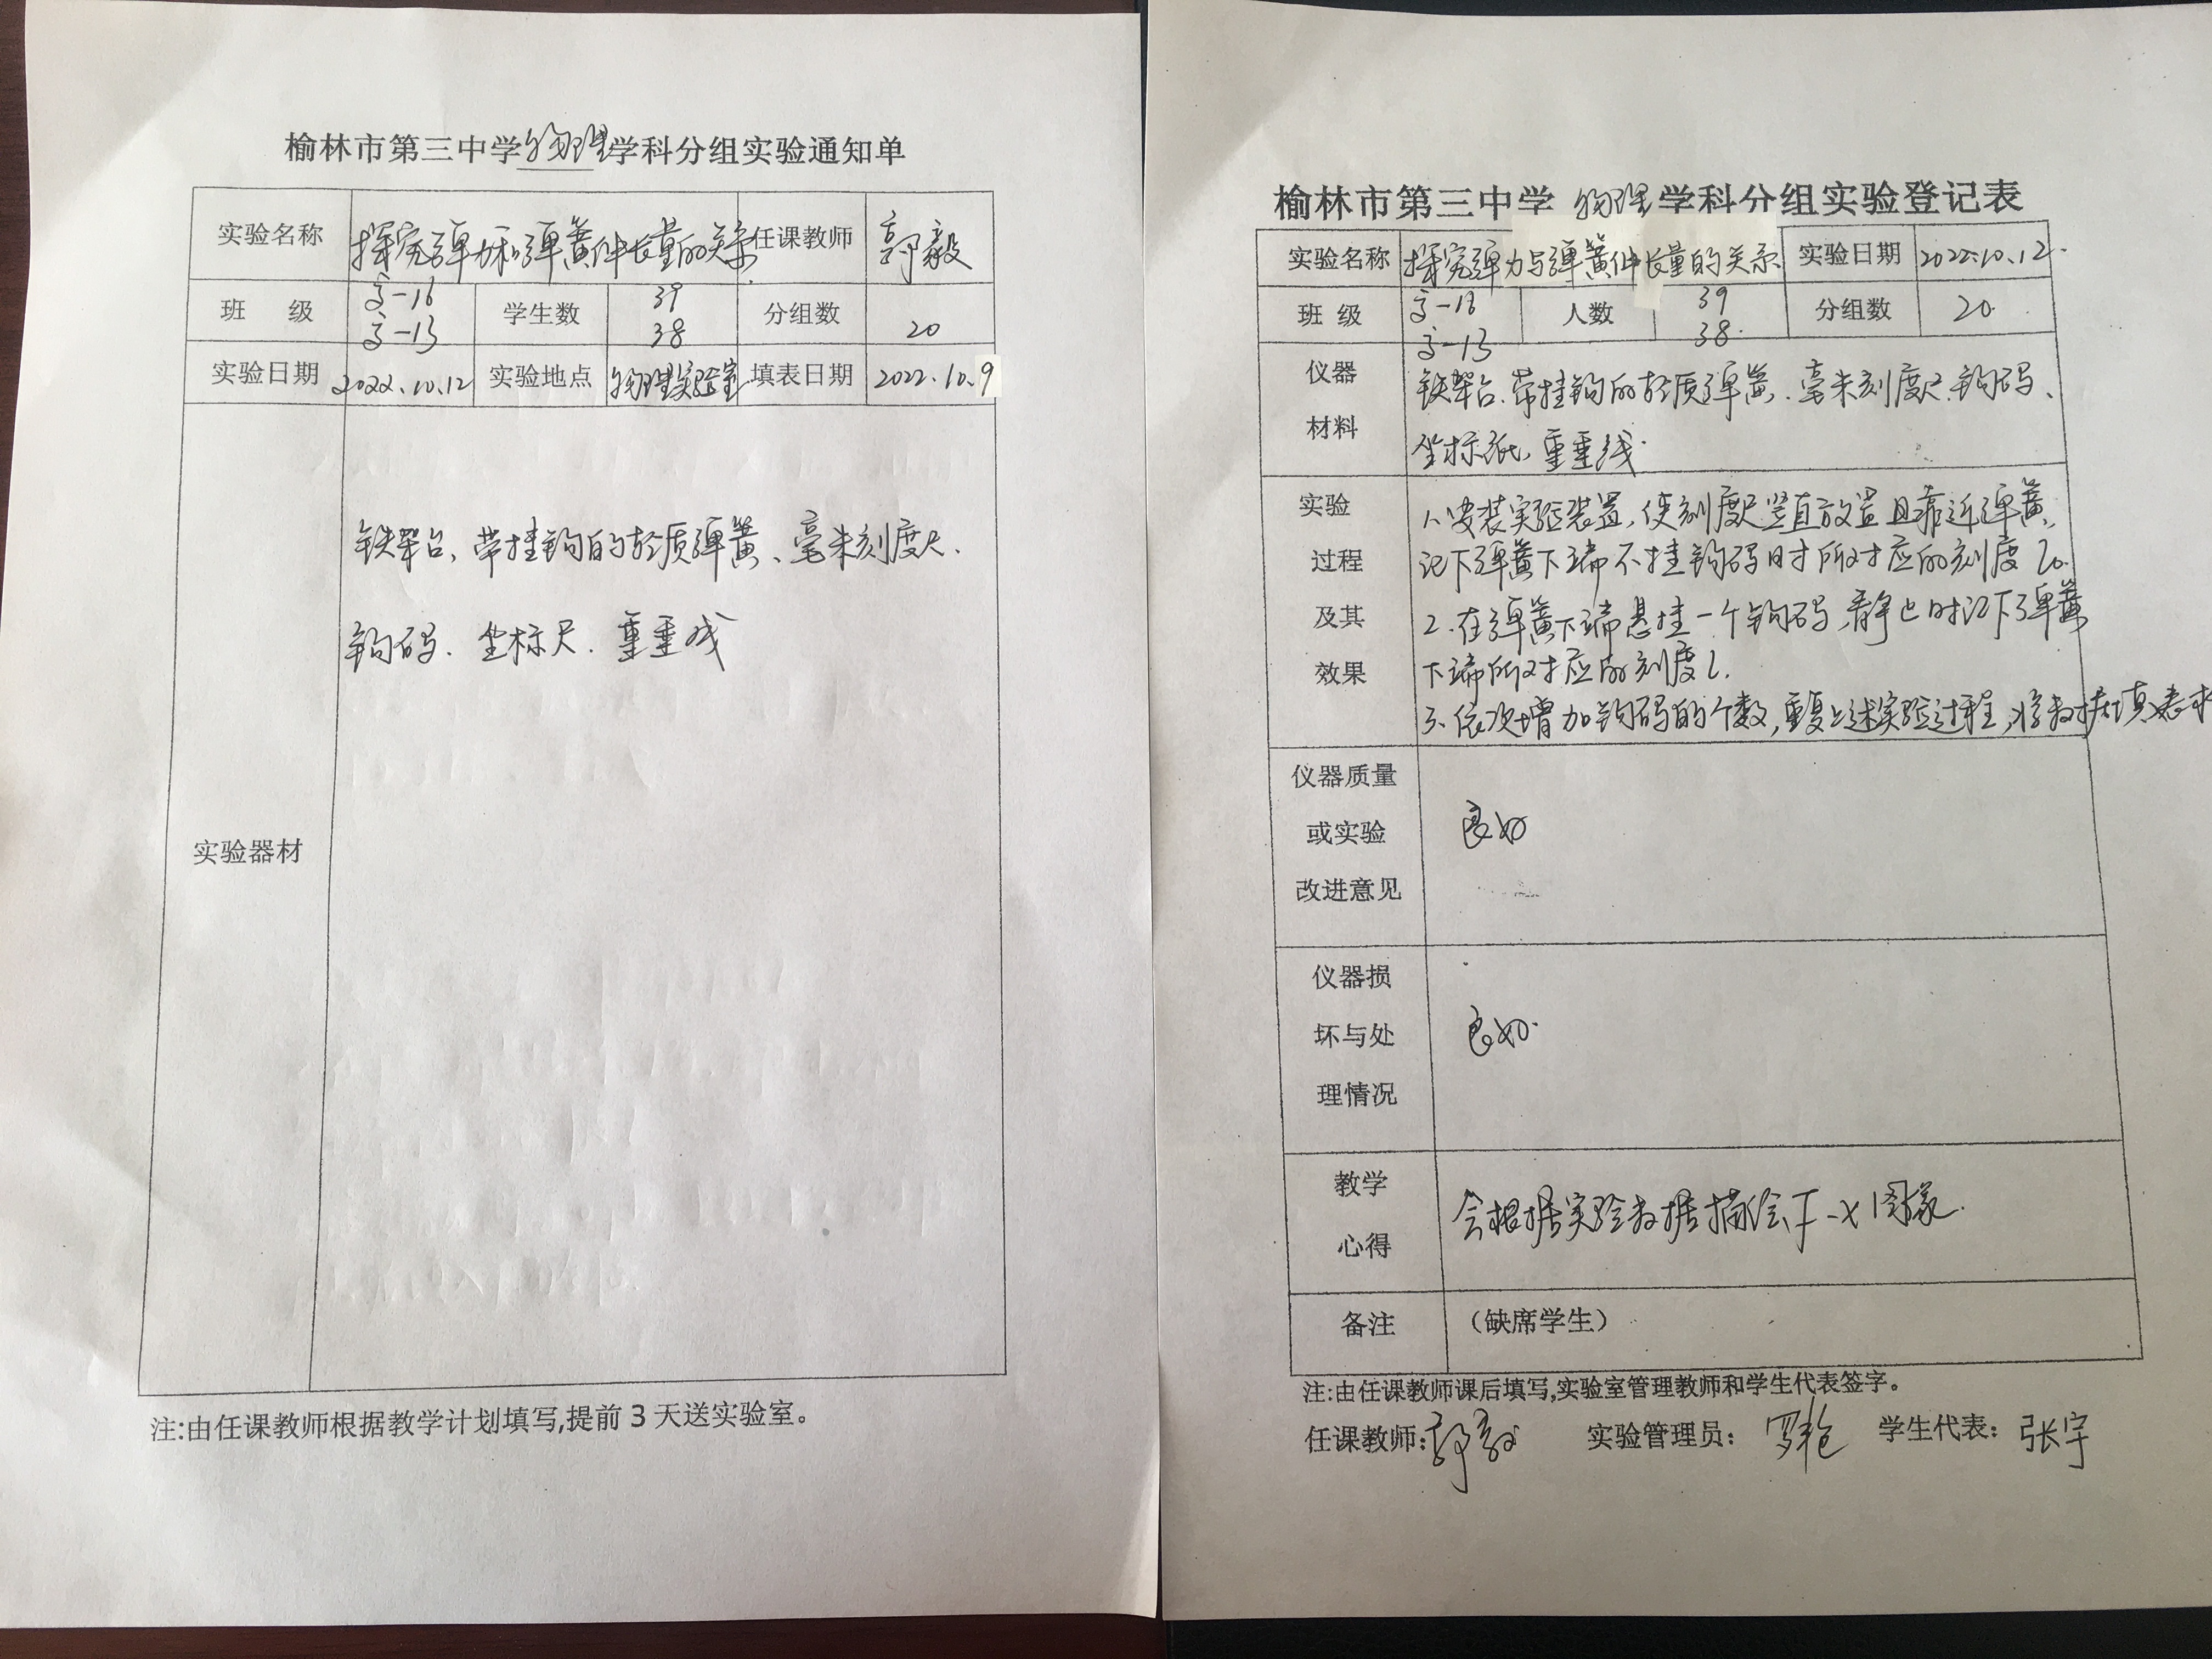 榆林市第三中学物理学科分组实验通知单
实验名称 探究弹力和弹簧伸长量的关系 任课教师 郭毅
班 级 高一16 高一13 学生数 39 38 分组数 20
实验日期 2022.10.12 实验地点 物理实验室 填表日期 2022.10.9
实验器材
铁架台、带挂钩的轻质弹簧、毫米刻度尺.
钩码. 坐标尺. 重垂线
注:由任课教师根据教学计划填写,提前3天送实验室。
榆林市第三中学 物理 学科分组实验登记表
实验名称 探究弹力与弹簧伸长量的关系 实验日期 2022.10.12.
班 级 高一16 高一13 人数 39 38. 分组数 20.
仪器材料
铁架台.带挂钩的轻质弹簧.毫米刻度尺.钩码、
坐标纸,重垂线.
实验过程及其效果
1、安装实验装置,使刻度尺竖直放置且靠近弹簧,
记下弹簧下端不挂钩码时所对应的刻度l0.
2.在弹簧下端悬挂一个钩码,静止时记下弹簧
下端所对应的刻度l.
3.依次增加钩码的个数,重复上述实验过程,将数据填入表格
仪器质量或实验改进意见
良好
仪器损坏与处理情况
良好.
教学心得
会根据实验数据描绘F-x图象.
备注 （缺席学生）
注:由任课教师课后填写,实验室管理教师和学生代表签字。
任课教师:郭毅 实验管理员: 罗艳 学生代表: 张宇